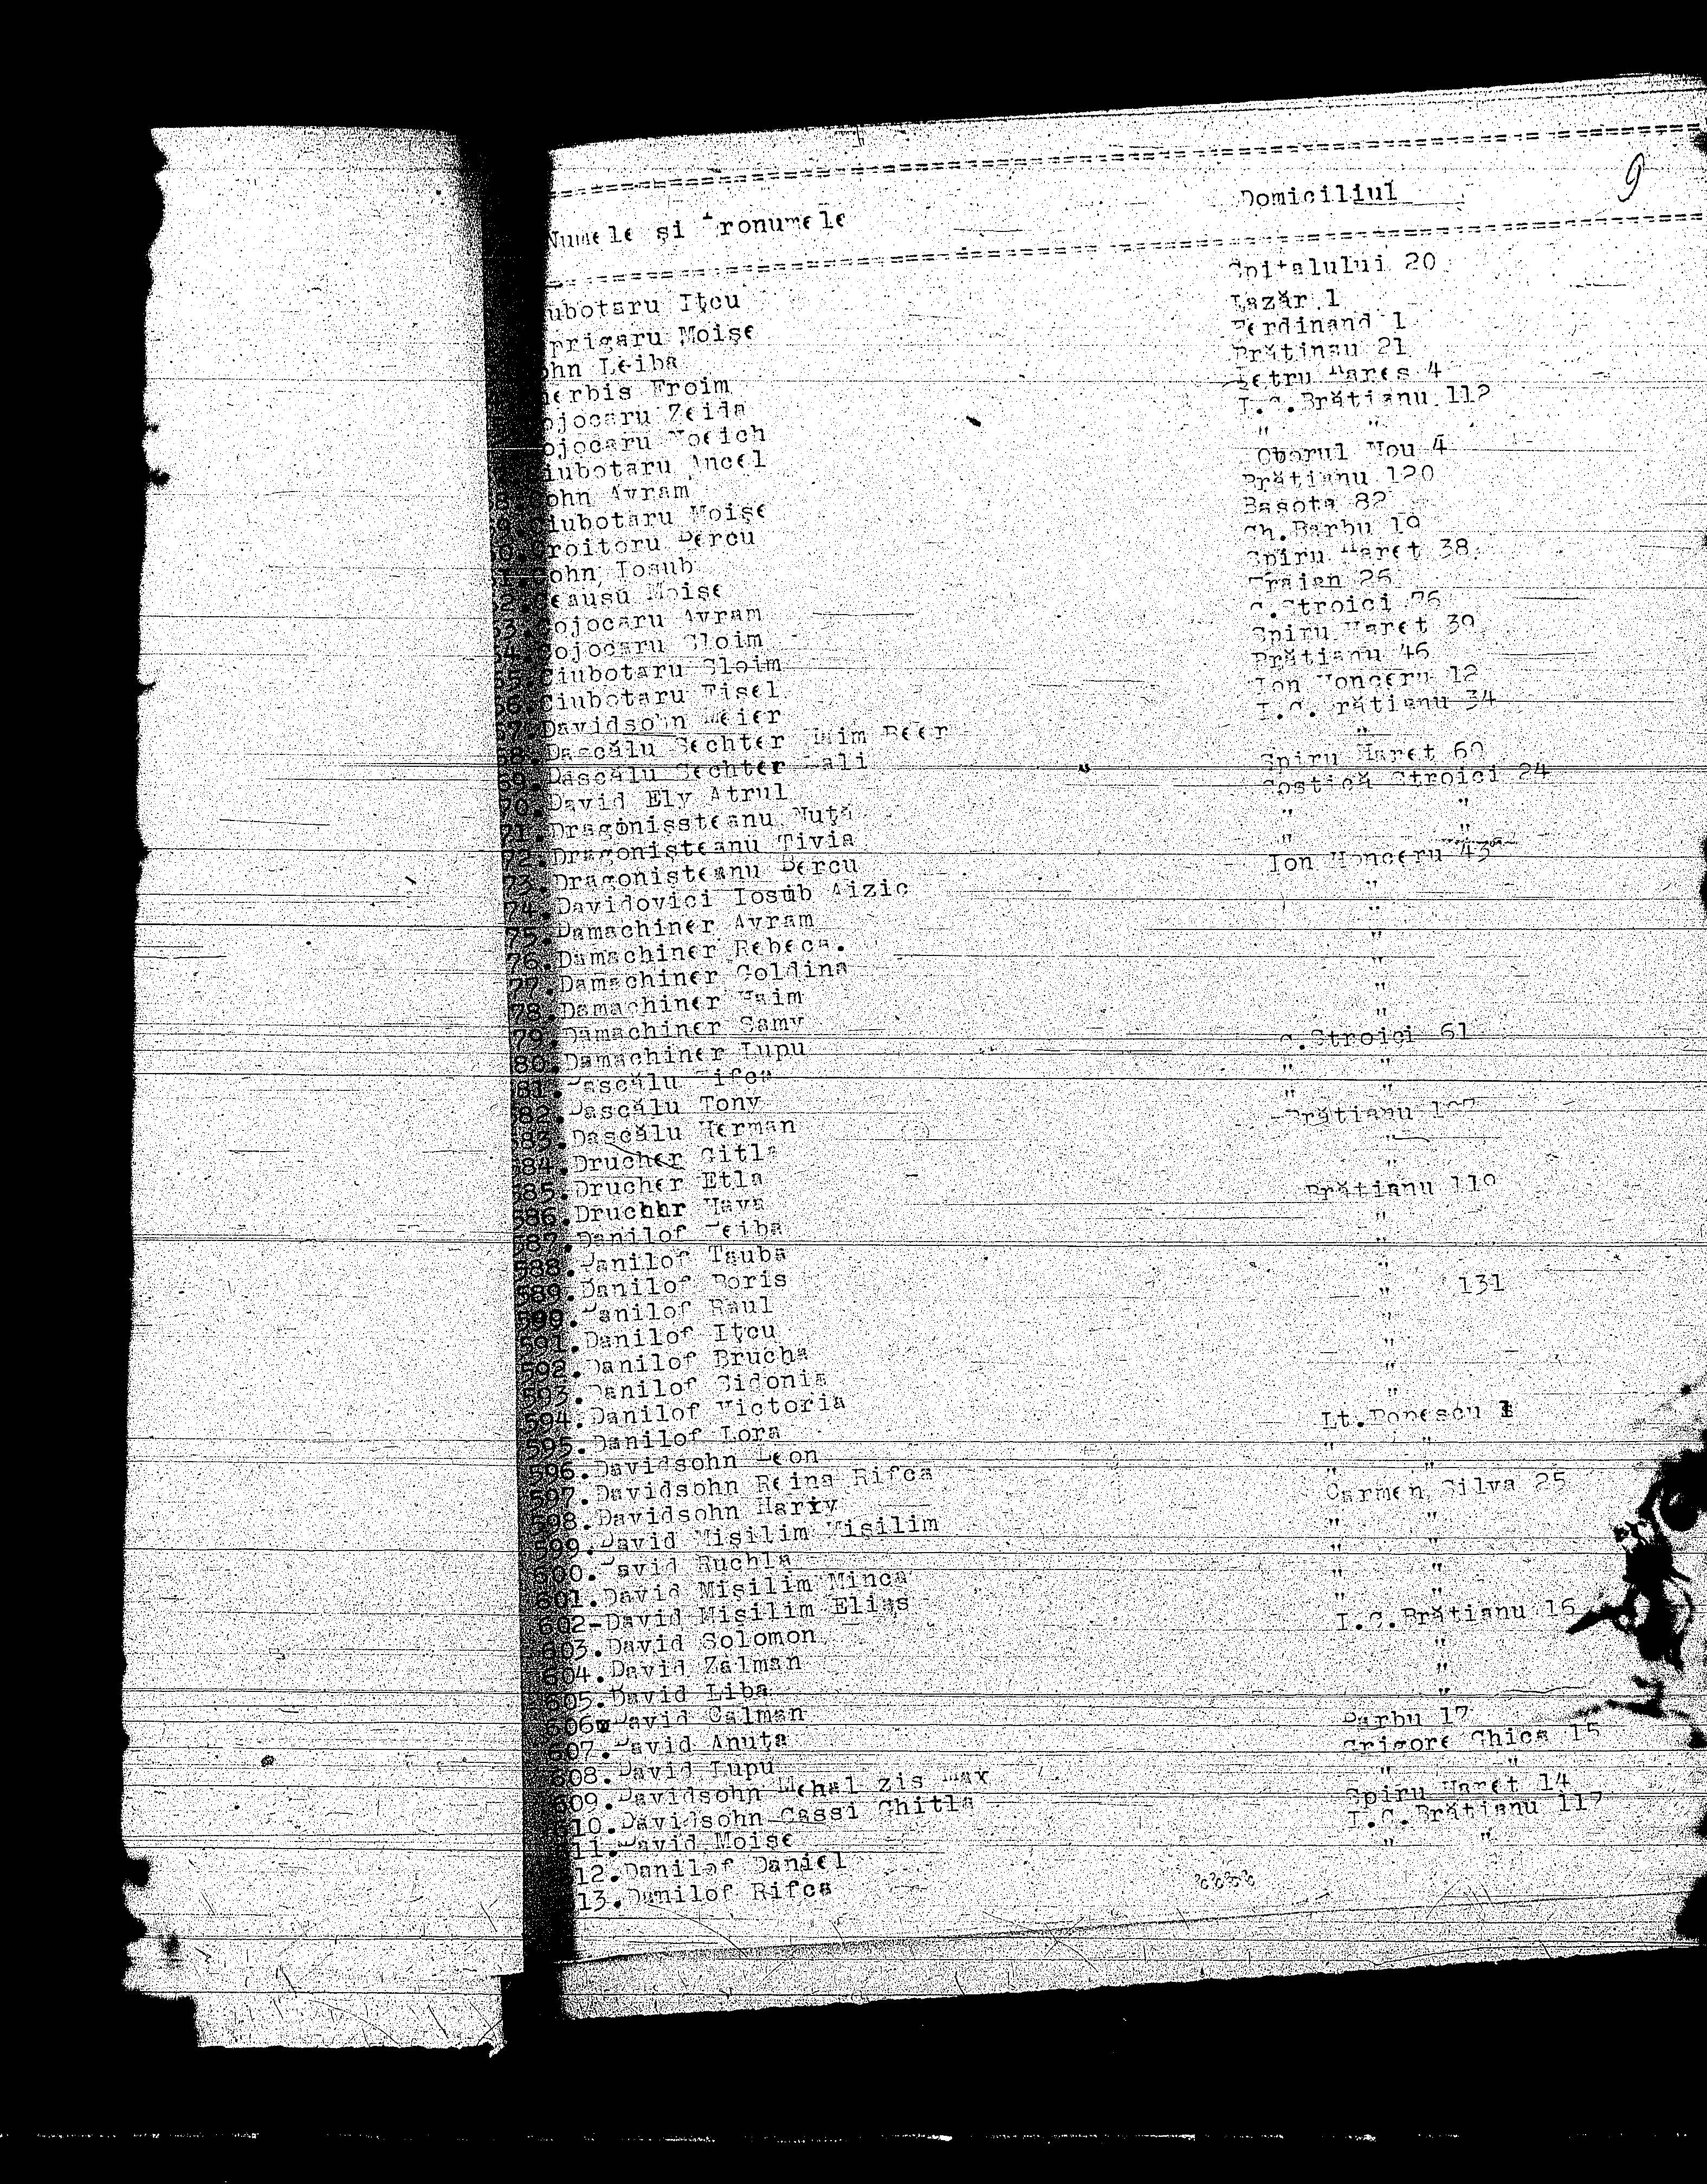 Numele şi Pronumele Domiciliul 9
ubotaru Iţcu Spitalului 20
rrigaru Moişe Lazăr 1
ohn Leiba Ferdinand 1
herbis Froim Brătinau 21
ojocaru Zeida Petru Rares 4
ojocaru I.C.Brătianu 112
iubotaru Ancel " "
8.Cohn Avram Oborul Nou 4
9.Ciubotaru Moişe Brătianu 120
0.Croitoru Bercu Basota 82
1.Cohn Iosub Gh.Barbu 19
2.Ceausu Moişe Spiru Haret 38
3.Cojocaru Avram Traian 26
4.Cojocaru Sloim C.Stroici 76
65.Ciubotaru Sloim Spiru Haret 39
66.Ciubotaru Fisel Brătianu 46
67.Davidsohn Meier Ion Honceru 12
68.Dascălu Sechter Haim Beer I.C.Brătianu 34
69.Dascălu Sechter Mali "
70.David Ely Atrul Spiru Haret 60
71.Dragonişsteanu Nuţă Costică Stroici 24
72.Dragonişteanu Tivia " "
73.Dragonişteanu Bercu " "
74.Davidovici Iosub Aizic Ion Honceru 43
75.Damachiner Avram "
76.Damachiner Rebeca. "
77.Damachiner Goldina "
78.Damachiner Haim "
79.Damachiner Samy "
80.Damachiner Lupu "
81.Dascălu Rifca C.Stroici 61
82.Dascălu Tony " "
583.Dascălu Herman " "
584.Drucher Gitla Brătianu 107
585.Drucher Etla "
586.Druchhr Hava "
587.Danilof Leiba Brătianu 119
588.Danilof Tauba "
589.Danilof Boris "
590.Danilof Raul "
591.Danilof Iţcu " 131
592.Danilof Brucha "
593.Danilof Sidonia "
594.Danilof Victoria "
595.Danilof Lora "
596.Davidsohn Leon Lt.Popescu 1
597.Davidsohn Reina Rifca " "
598.Davidsohn Hariy " "
599.David Mişilim Mişilim Carmen Silva 25
600.David Ruchla " "
601.David Mişilim Minca " "
602-David Mişilim Elias " "
603.David Solomon " "
604.David Zalman I.C.Brătianu 16
605.David Liba "
606.David Calman "
607.David Anuţa "
608.David Lupu Barbu 17
609.Davidsohn Mehal zis Max Grigore Ghica 15
610.Davidsohn Cassi Ghitla " "
11.David Moişe Spiru Haret 14
12.Danilof Daniel I.C.Brătianu 117
13.Danilof Rifca " "